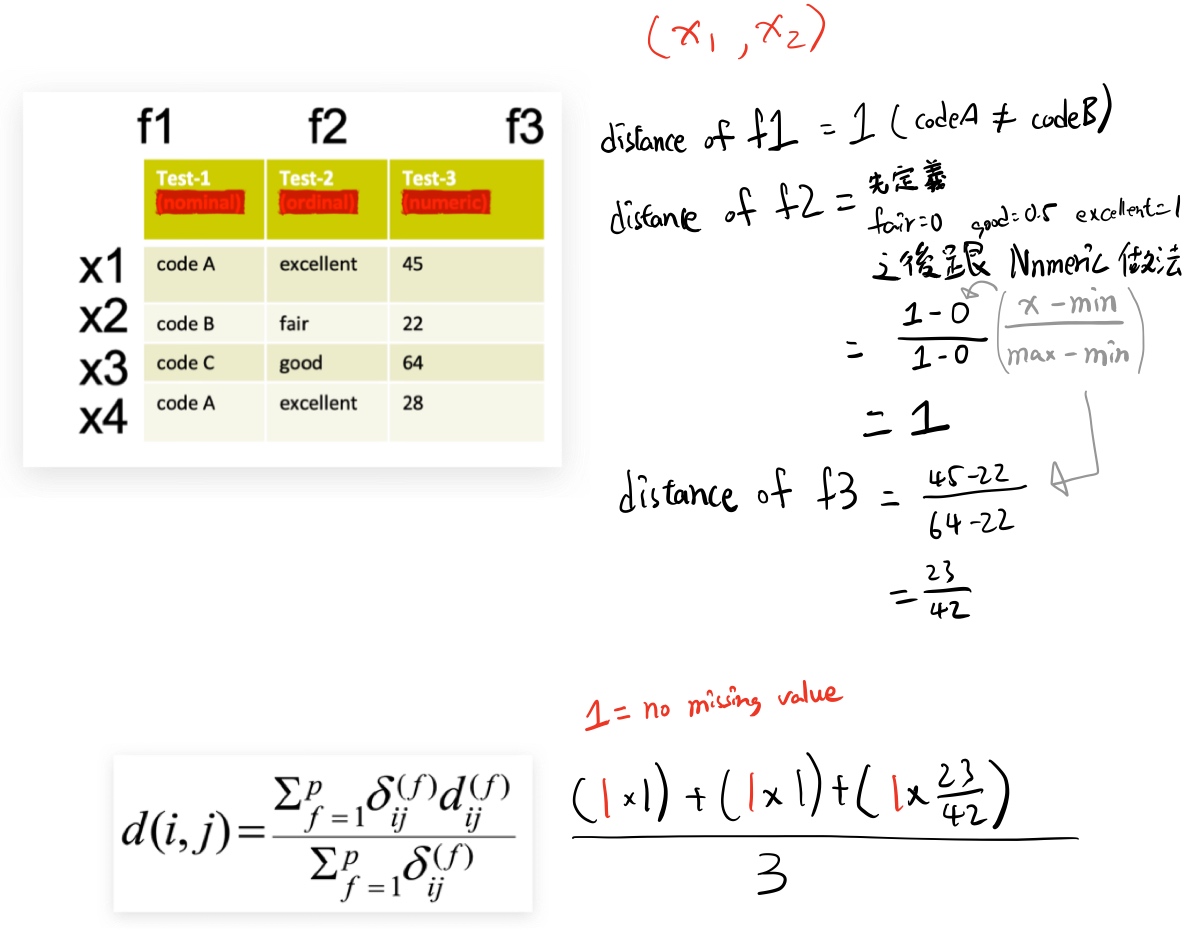 (x₁, x₂)
f1 f2 f3
Test-1 Test-2 Test-3
(nominal) (ordinal) (numeric)
x1 code A excellent 45
x2 code B fair 22
x3 code C good 64
x4 code A excellent 28
distance of f1 = 1 (codeA ≠ codeB)
distance of f2 = 先定義
fair=0 good=0.5 excellent=1
之後跟 Numeric 做法
= \frac{1-0}{1-0} (\frac{x-min}{max-min})
= 1
distance of f3 = \frac{45-22}{64-22}
= \frac{23}{42}
1 = no missing value
d(i,j) = \frac{\sum_{f=1}^{p} \delta_{ij}^{(f)} d_{ij}^{(f)}}{\sum_{f=1}^{p} \delta_{ij}^{(f)}}
\frac{(1×1)+(1×1)+(1×\frac{23}{42})}{3}